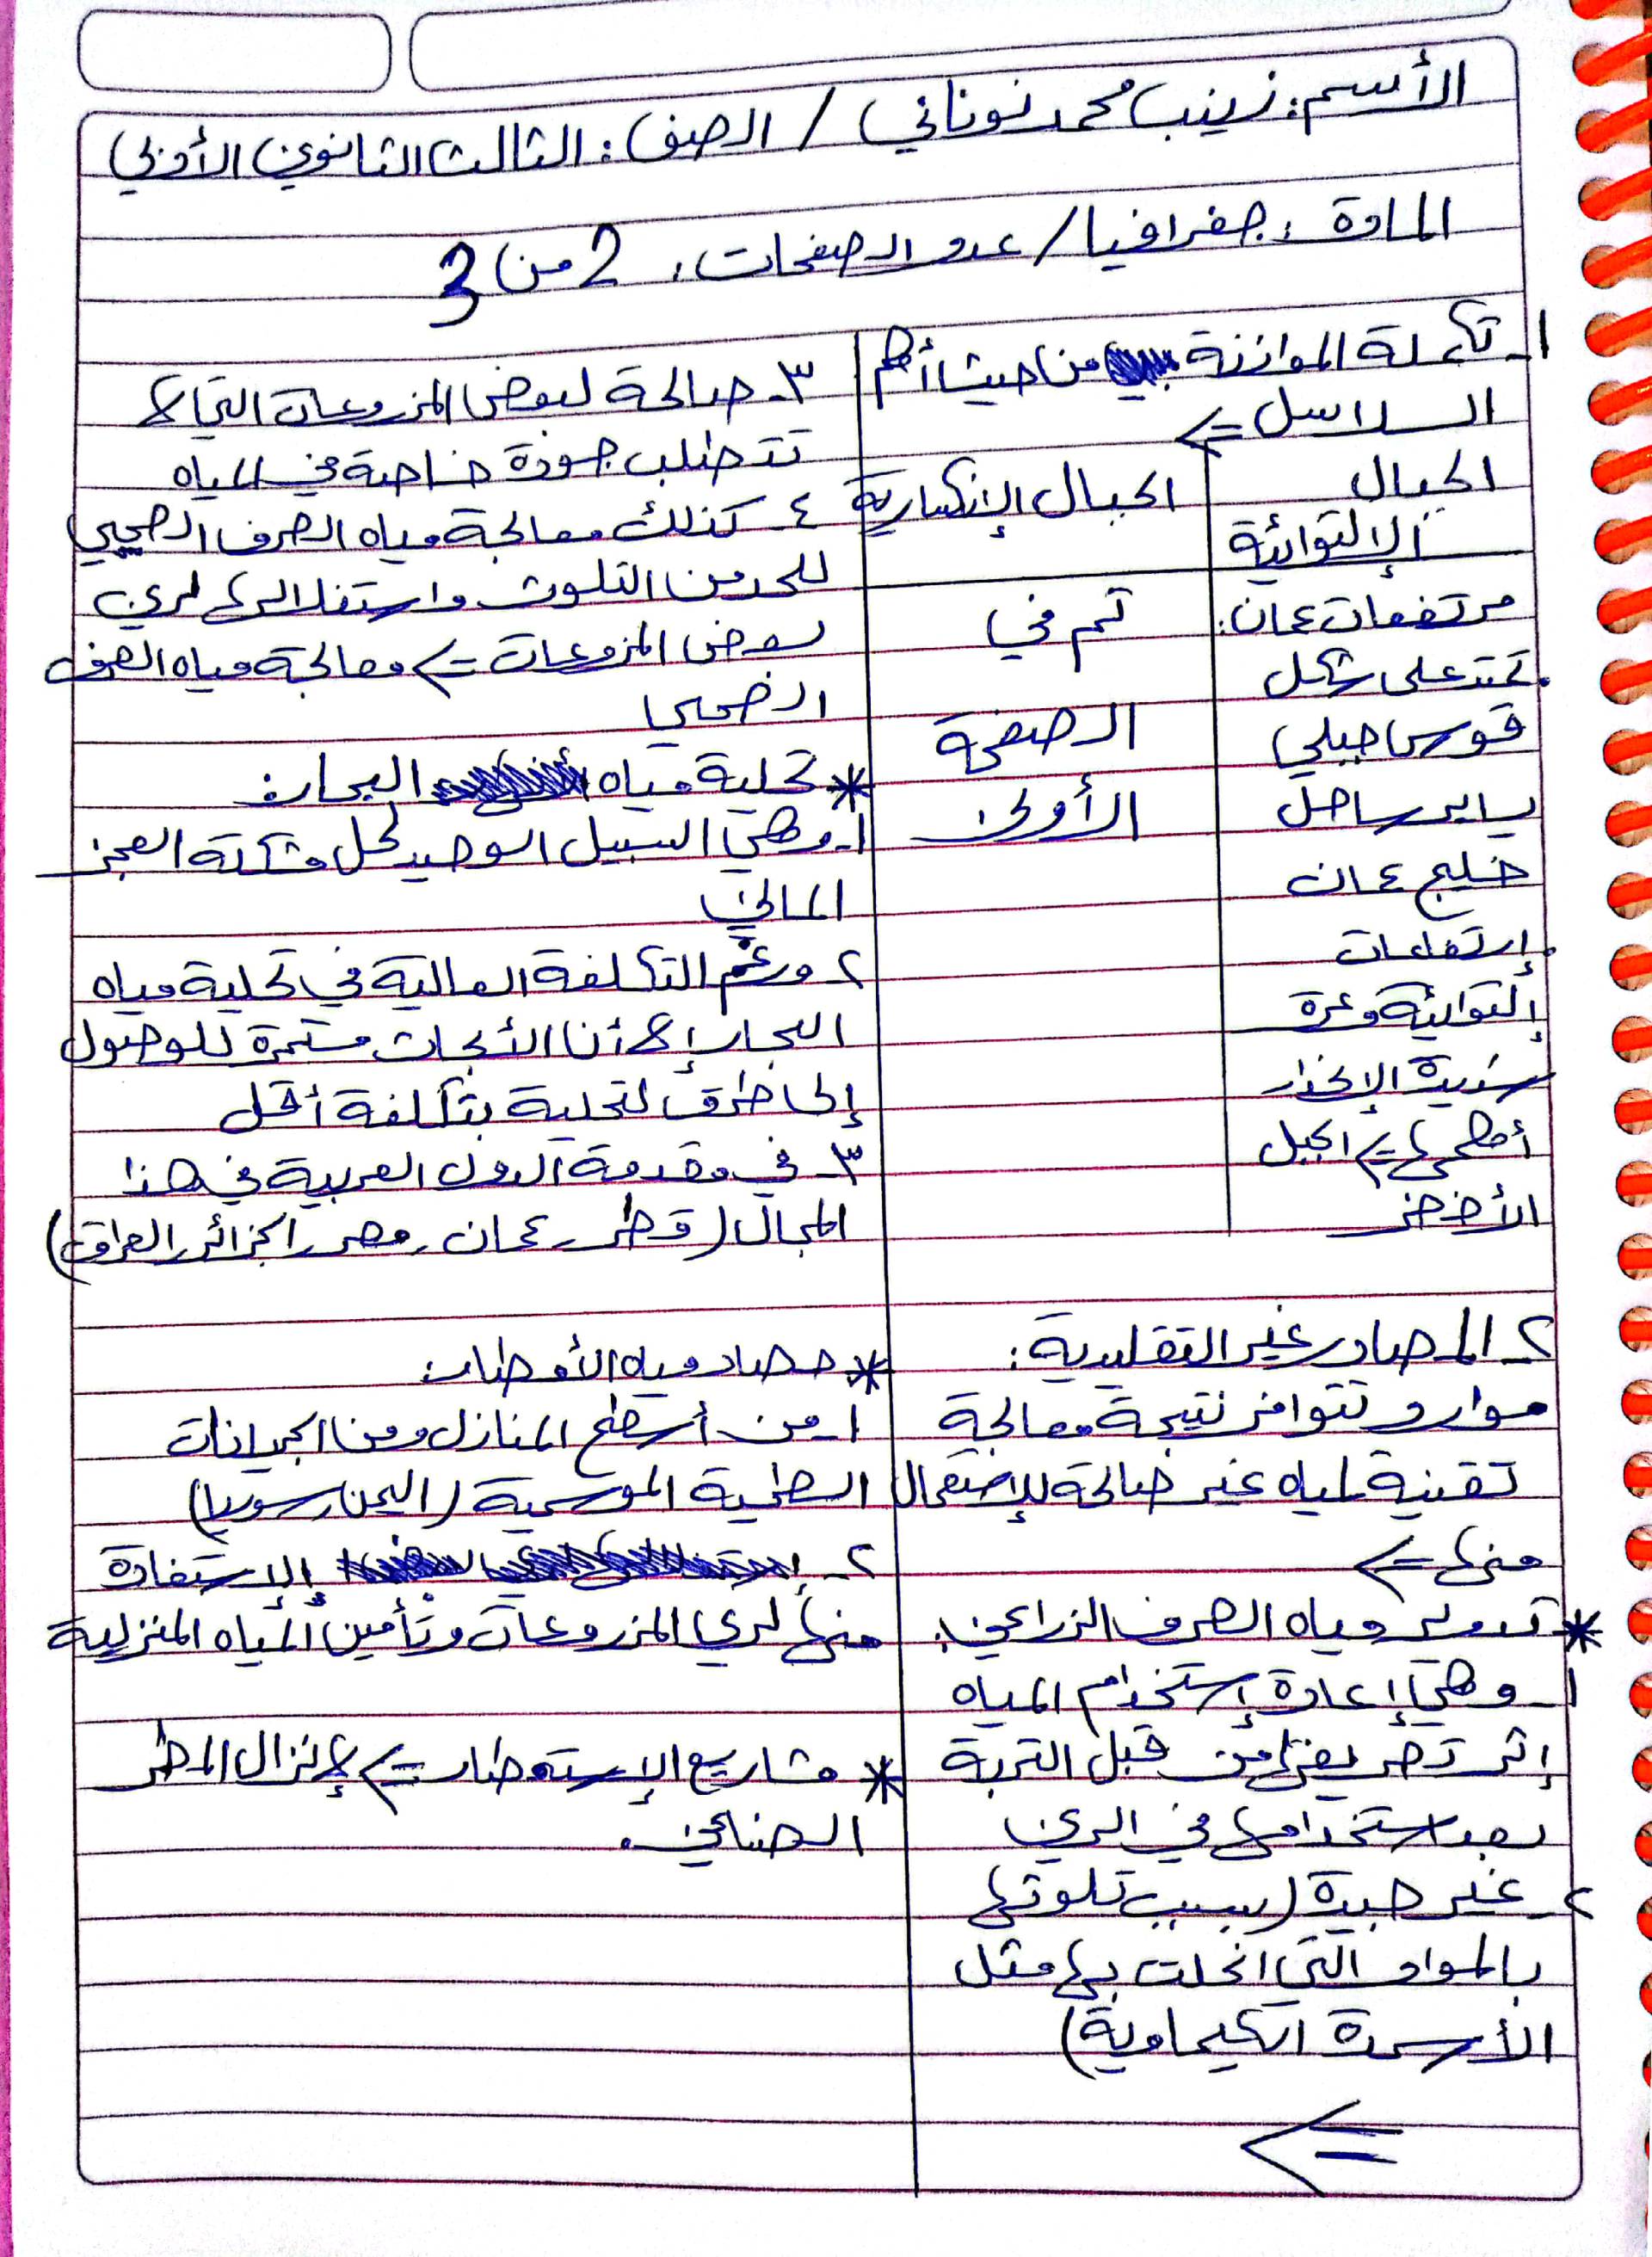 الأسم: زينب محمد نوناني / الصف: الثالث الثانوي الأدبي
المادة: جغرافيا / عدد الصفحات: 2 من 3
١- تكملة الموازنة من حيث أهم
السلاسل <=
الجبال
الإلتوائية
الجبال الإنكسارية
مرتفعات عمان:
. تمتد على شكل
قوس جبلي
يساير ساحل
خليج عمان
. إرتفاعات
إلتوائية وعرة
شديدة الإنحدار
أهمها <= الجبل
الأخضر
تم في
الصفحة
الأولى
٢- المصادر غير التقليدية:
موارد تتوافر نتيجة معالجة
تقنية لمياه غير صالحة للإستعمال
منها <=
* تدوير مياه الصرف الزراعي:
١- وهي إعادة إستخدام المياه
إثر تصريفها من قبل التربة
بعد استخدامها في الري
٢- غير جيدة (بسبب تلوثها
بالمواد التي انحلت بها مثل
الأسمدة الكيماوية)
<=
٣- صالحة لبعض المزروعات التي لا
تتطلب جودة خاصة في المياه
٤- كذلك معالجة مياه الصرف الصحي
للحد من التلوث واستغلالها لري
بعض المزروعات <= معالجة مياه الصرف
الصحي
* تحلية مياه البحار:
١- وهي السبيل الوحيد لحل مشكلة العجز
المائي
٢- ورغم التكلفة العالية في تحلية مياه
البحار إلا أن الأبحاث مستمرة للوصول
إلى طرق لتحلية بتكلفة أقل
٣- في مقدمة الدول العربية في هذا
المجال (قطر، عمان، مصر، الجزائر، العراق)
* حصاد مياه الأمطار:
١- من أسطح المنازل ومن الجريانات
السطحية الموسمية (اليمن، سوريا)
٢- الإستفادة
منها لري المزروعات وتأمين المياه المنزلية
* مشاريع الإستمطار <= لإنزال المطر
الصناعي.